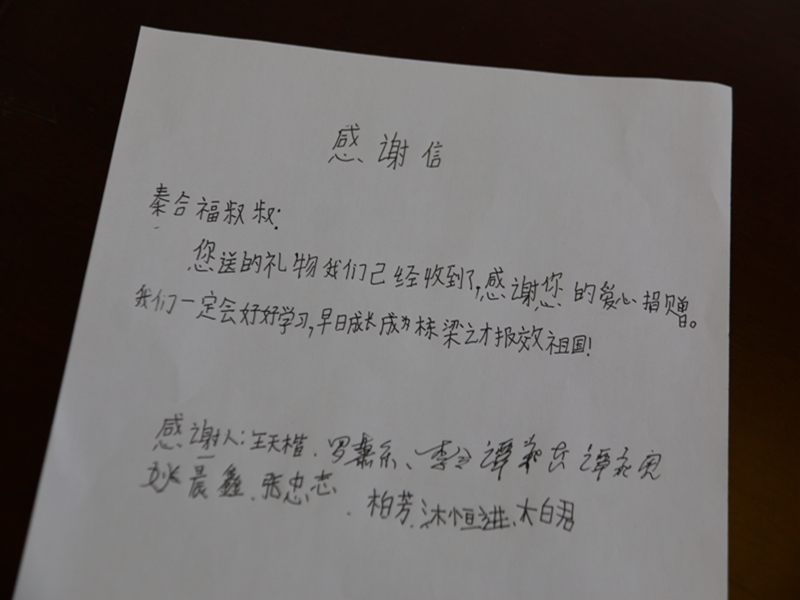 感谢信
秦合福叔叔:
您送的礼物我们已经收到了,感谢您的爱心捐赠。
我们一定会好好学习,早日成长成为栋梁之才报效祖国!
感谢人:王天楷、罗
晨鑫、张忠志、柏芳、沐恒进、木白君